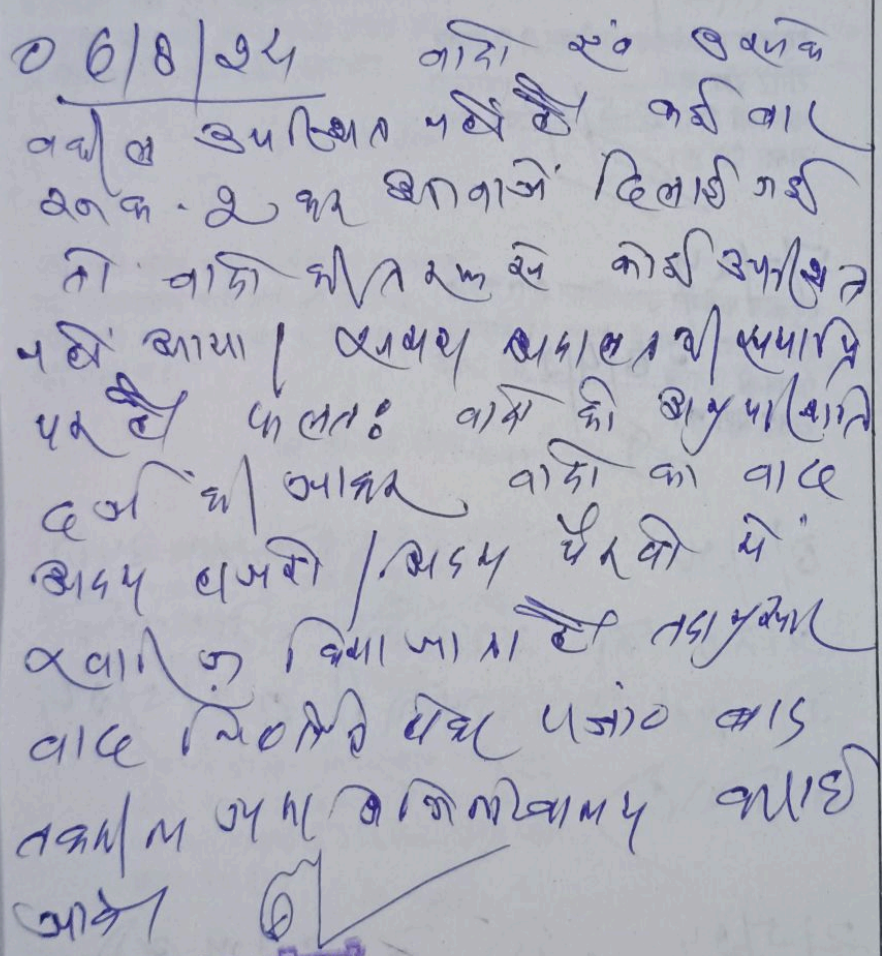 06/8/24 वादी एवं उसके
वकील उपस्थित नहीं है। कई बार
रुक-2 कर आवाजें दिलाई गई
तो वादी की तरफ से कोई उपस्थित
नहीं आया। समय अदालत की समाप्ति
पर है। फलतः वादी की अनुपस्थिति
दर्ज की जाकर वादी का वाद
अदम हाजरी/अदम पैरवी में
खारिज किया जाता है। तदानुसार
वाद निर्णित होकर पत्रा० बाद
तकमील जमा अभिलेखालय कराई
जावे।